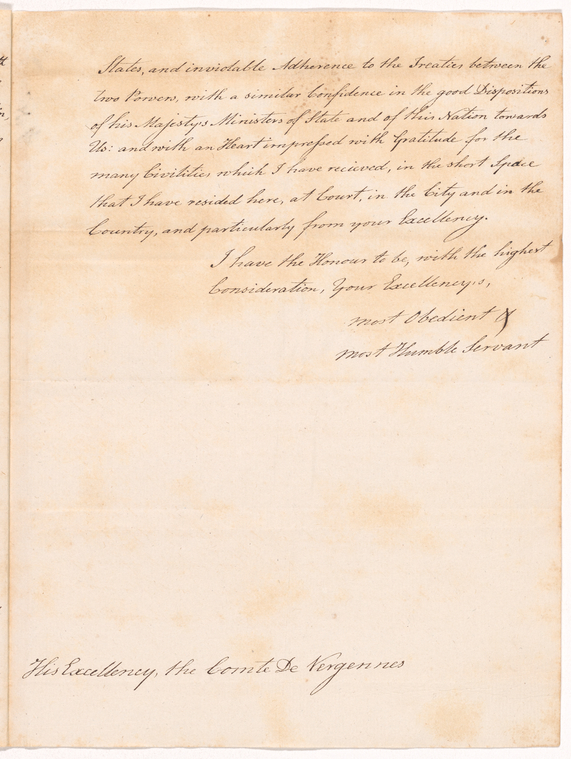 States, and inviolable Adherence to the Treaties between the
two Powers, with a similar Confidence in the good Dispositions
of his Majesty's Ministers of State and of this Nation towards
Us: and with an Heart impressed with Gratitude for the
many Civilities which I have recieved, in the short Space
that I have resided here, at Court, in the City and in the
Country, and particularly from your Excellency.
I have the Honour to be, with the highest
Consideration, Your Excellency's,
most Obedient &
most Humble Servant
His Excellency, the Comte De Vergennes